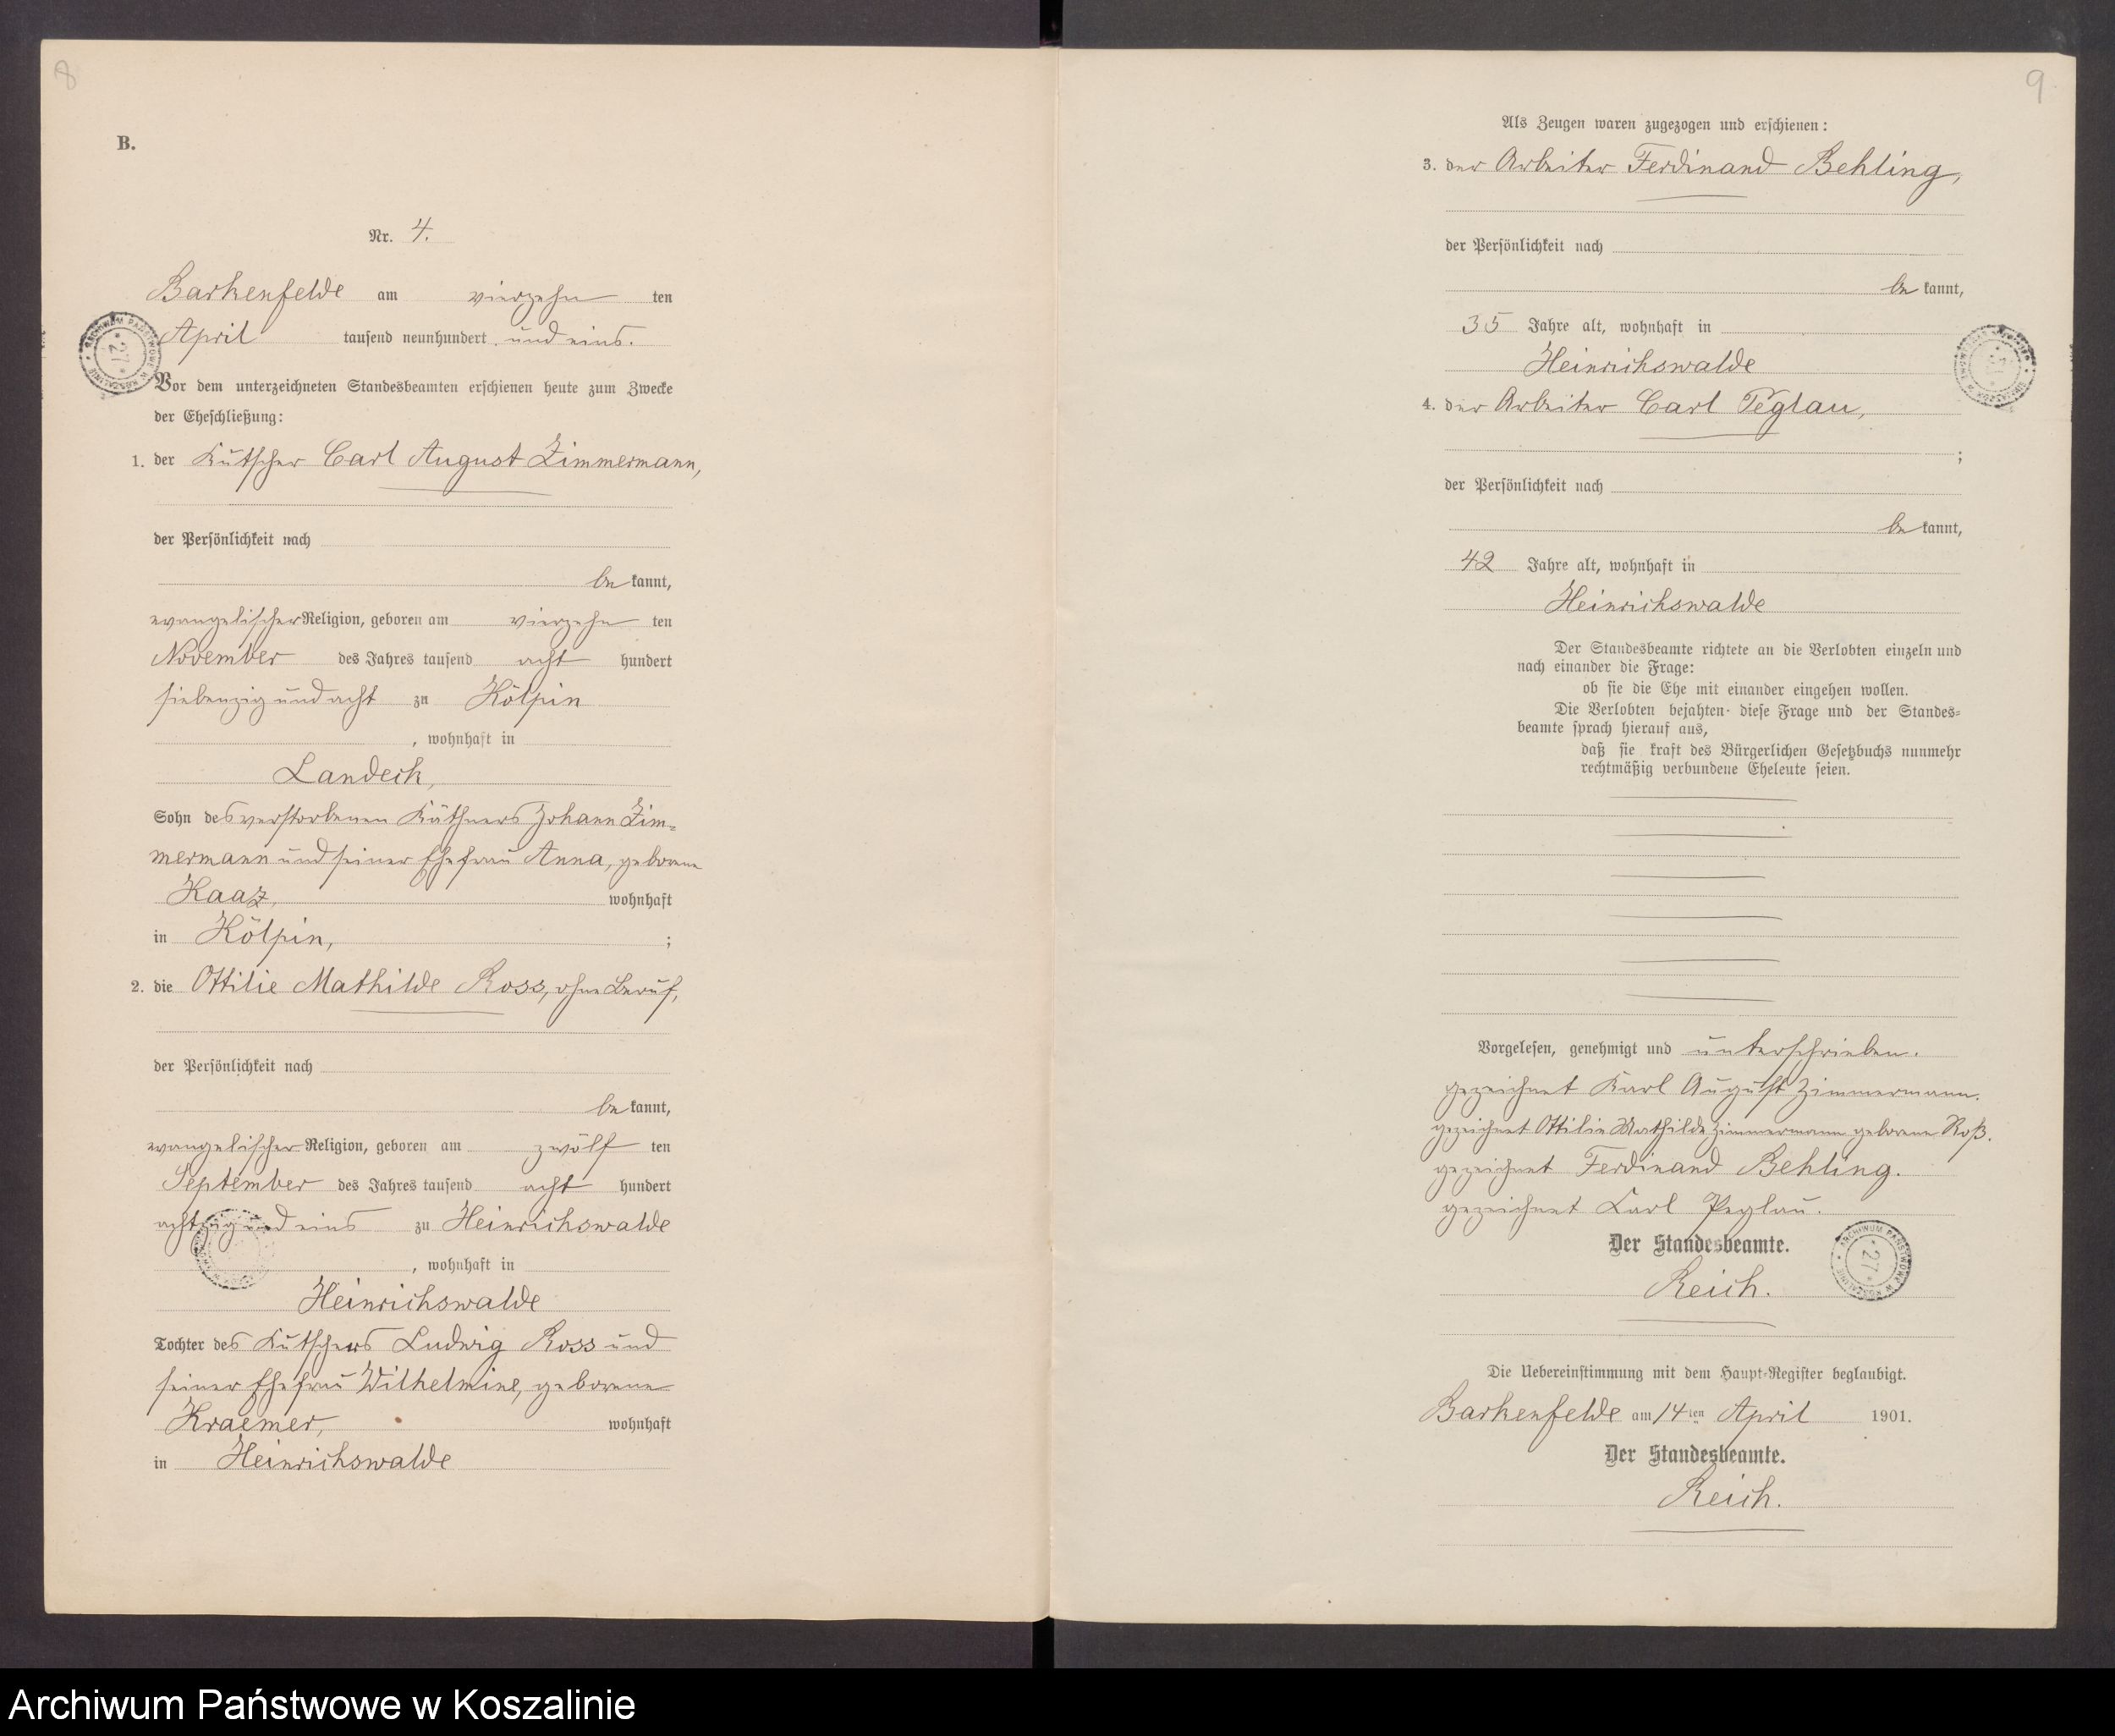 8
B.
Nr. 4.
Barkenfelde am vierzehn ten
April tausend neunhundert und eins.
Vor dem unterzeichneten Standesbeamten erschienen heute zum Zwecke
der Eheschließung:
1. der Kutscher Carl August Zimmermann,
der Persönlichkeit nach
be kannt,
evangelischer Religion, geboren am vierzehn ten
November des Jahres tausend acht hundert
siebenzig und acht zu Kölpin
, wohnhaft in
Landeck,
Sohn des verstorbenen Käthners Johann Zim-
mermann und seiner Ehefrau Anna, geborene
Kaaz, wohnhaft
in Kölpin, ;
2. die Ottilie Mathilde Ross, ohne Beruf,
der Persönlichkeit nach
be kannt,
evangelischer Religion, geboren am zwölf ten
September des Jahres tausend acht hundert
achtzig und eins zu Heinrichswalde
, wohnhaft in
Heinrichswalde
Tochter des Kutschers Ludwig Ross und
seiner Ehefrau Wilhelmine, geborene
Kraemer, wohnhaft
in Heinrichswalde
9
Als Zeugen waren zugezogen und erschienen:
3. der Arbeiter Ferdinand Behling,
der Persönlichkeit nach
be kannt,
35 Jahre alt, wohnhaft in
Heinrichswalde
4. der Arbeiter Carl Peglau,
;
der Persönlichkeit nach
be kannt,
42 Jahre alt, wohnhaft in
Heinrichswalde
Der Standesbeamte richtete an die Verlobten einzeln und
nach einander die Frage:
ob sie die Ehe mit einander eingehen wollen.
Die Verlobten bejahten diese Frage und der Standes-
beamte sprach hierauf aus,
daß sie kraft des Bürgerlichen Gesetzbuchs nunmehr
rechtmäßig verbundene Eheleute seien.
Vorgelesen, genehmigt und unterschrieben.
gezeichnet Karl August Zimmermann.
gezeichnet Ottilie Mathilde Zimmermann geborene Roß.
gezeichnet Ferdinand Behling.
gezeichnet Carl Peglau.
Der Standesbeamte.
Reich.
ARCHIWUM PAŃSTWOWE W KOSZALINIE * 27 *
Die Uebereinstimmung mit dem Haupt-Register beglaubigt.
Barkenfelde am 14ten April 1901.
Der Standesbeamte.
Reich.
Archiwum Państwowe w Koszalinie